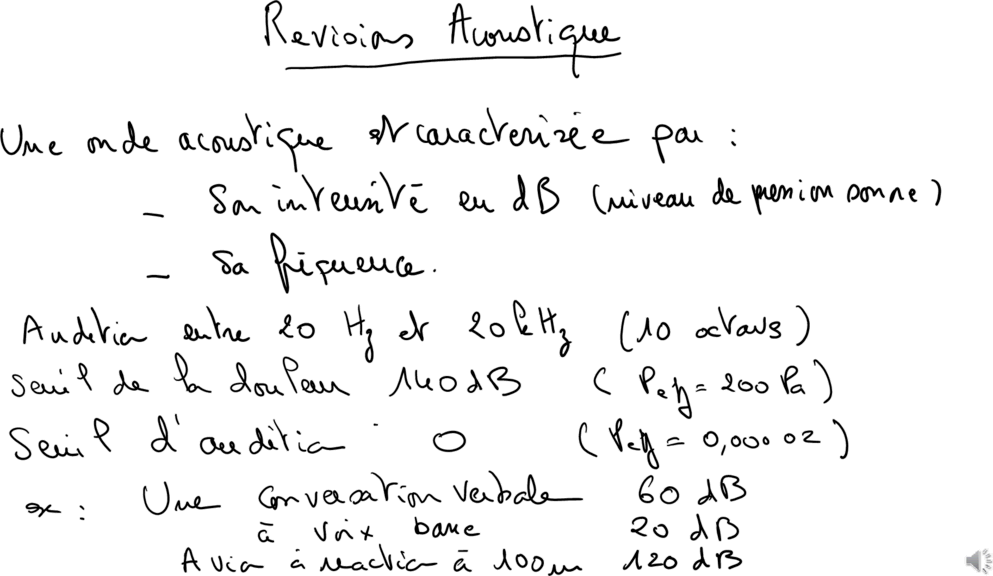 Revisions Acoustique
Une onde acoustique est caracterisée par :
- Son intensité en dB (niveau de pression sonore)
- Sa fréquence.
Audition entre 20 Hz et 20 kHz (10 octaves)
Seuil de la douleur 140 dB (Peff = 200 Pa)
Seuil d'audition 0 (Peff = 0,000 02)
ex : Une conversation verbale 60 dB
à voix basse 20 dB
Avion à reaction à 100m 120 dB